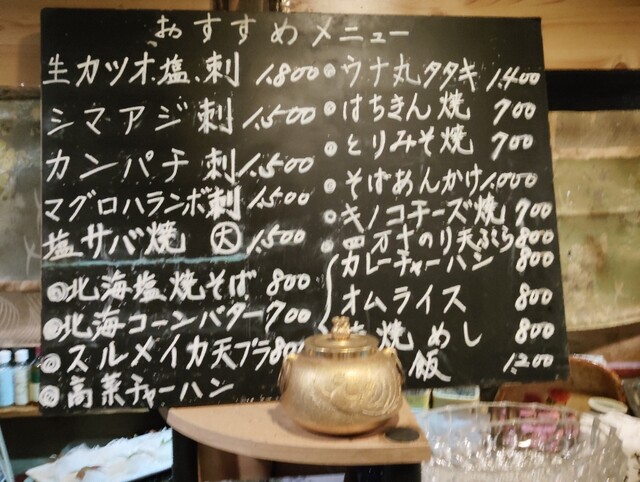 おすすめメニュー
生カツオ塩刺 1,800
シマアジ刺 1,500
カンパチ刺 1,500
マグロハランボ刺 1,500
塩サバ焼 大 1,500
◎北海塩焼そば 800
◎北海コーンバター 700
◎スルメイカ天プラ 800
◎高菜チャーハン
ウナ丸タタキ 1,400
はちきん焼 700
とりみそ焼 700
そばあんかけ 1,000
キノコチーズ焼 700
四万十のり天ぷら 800
カレーチャーハン 800
オムライス 800
焼めし 800
飯 1,200